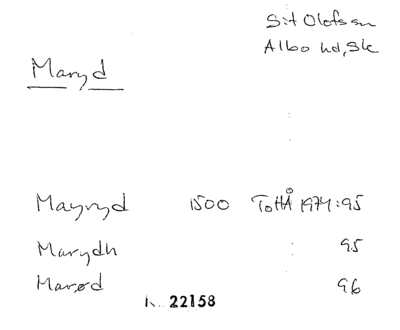 S:t Olofs sn
Albo hd, Sk
Maryd
Mayryd 1500 TottÅ 1974:95
Marydh 95
Marød 96
22158